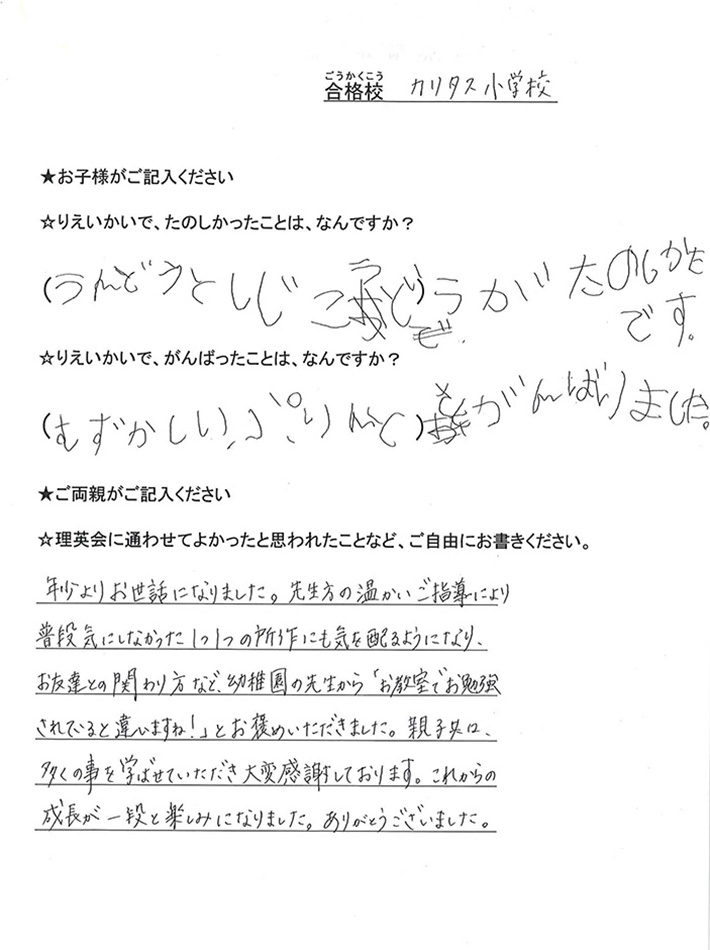 ごうかくこう
合格校 カリタス小学校
★お子様がご記入ください
☆りえいかいで、たのしかったことは、なんですか？
(うんどうとしじこうどう)がたのしかた
です。
☆りえいかいで、がんばったことは、なんですか？
(むずかしい、ぷりんと)をがんばりました。
★ご両親がご記入ください
☆理英会に通わせてよかったと思われたことなど、ご自由にお書きください。
年少よりお世話になりました。先生方の温かいご指導により
普段気にしなかった1つ1つの所作にも気を配るようになり、
お友達との関わり方など、幼稚園の先生から「お教室でお勉強
されていると違いますね!」とお褒めいただきました。親子共に、
多くの事を学ばせていただき大変感謝しております。これからの
成長が一段と楽しみになりました。ありがとうございました。